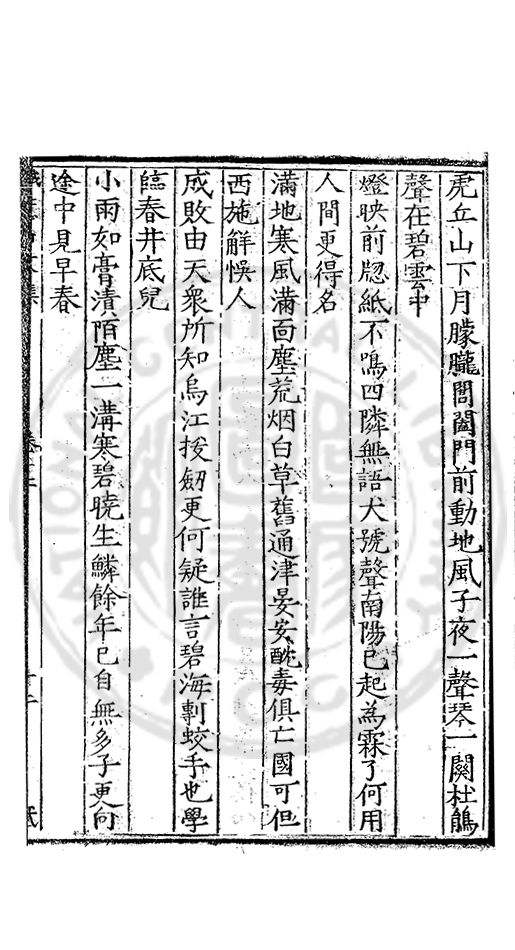 虎丘山下月朦朧閶闔門前動地風子夜一聲琴一闋杜鵑
聲在碧雲中
燈映前窻紙不鳴四隣無語犬號聲南陽已起為霖了何用
人間更得名
滿地寒風滿面塵荒烟白草舊通津晏安酖毒俱亡國可但
西施解悞人
成敗由天衆所知烏江援劒更何疑誰言碧海剸蛟手也學
臨春井底兒
小雨如膏漬陌塵一溝寒碧曉生鱗餘年已自無多子更向
途中見早春